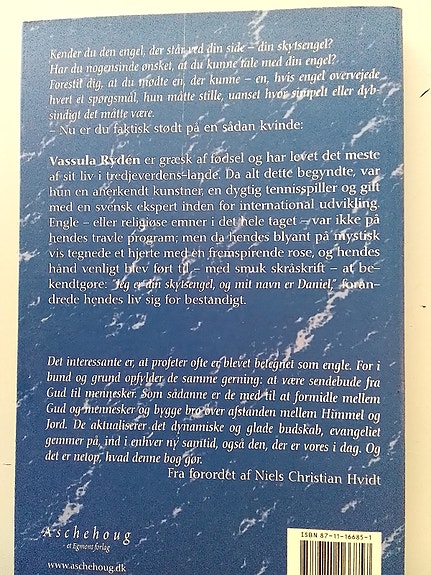 Kender du den engel, der står ved din side – din skytsengel?
Har du nogensinde ønsket, at du kunne tale med din engel?
Forestil dig, at du mødte en, der kunne – en, hvis engel overvejede
hvert et spørgsmål, hun måtte stille, uanset hvor simpelt eller dyb-
sindigt det måtte være.
– Nu er du faktisk stødt på en sådan kvinde:
Vassula Rydén er græsk af fødsel og har levet det meste
af sit liv i tredjeverdens-lande. Da alt dette begyndte, var
hun en anerkendt kunstner, en dygtig tennisspiller og gift
med en svensk ekspert inden for international udvikling.
Engle – eller religiøse emner i det hele taget – var ikke på
hendes travle program; men da hendes blyant på mystisk
vis tegnede et hjerte med en fremspirende rose, og hendes
hånd venligt blev ført til – med smuk skråskrift – at be-
kendtgøre: "Jeg er din skytsengel, og mit navn er Daniel," foran-
drede hendes liv sig for bestandigt.
Det interessante er, at profeter ofte er blevet betegnet som engle. For i
bund og grund opfylder de samme gerning: at være sendebude fra
Gud til mennesker. Som sådanne er de med til at formidle mellem
Gud og mennesker og bygge bro over afstanden mellem Himmel og
Jord. De aktualiserer det dynamiske og glade budskab, evangeliet
gemmer på, ind i enhver ny samtid, også den, der er vores i dag. Og
det er netop, hvad denne bog gør.
Fra forordet af Niels Christian Hvidt
Aschehoug
– et Egmont forlag
www.aschehoug.dk
ISBN 87-11-16685-1